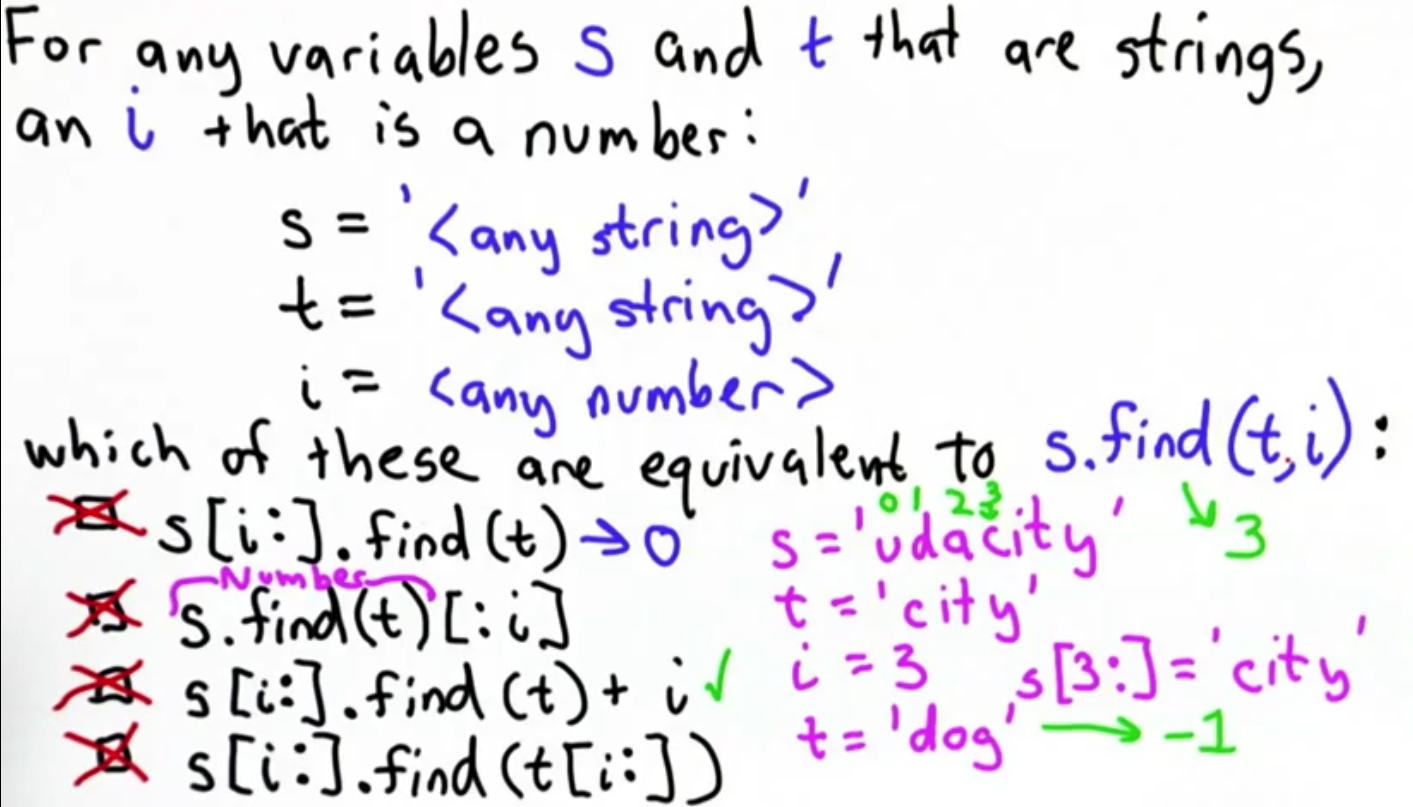 For any variables s and t that are strings,
an i that is a number:
s = '<any string>'
t = '<any string>'
i = <any number>
which of these are equivalent to s.find(t,i):
s[i:].find(t) → 0
Number
s.find(t)[:i]
s[i:].find(t) + i ✓
s[i:].find(t[i:])
3
0 1 2 3
s = 'udacity'
t = 'city'
i = 3 s[3:] = 'city'
t = 'dog' → -1